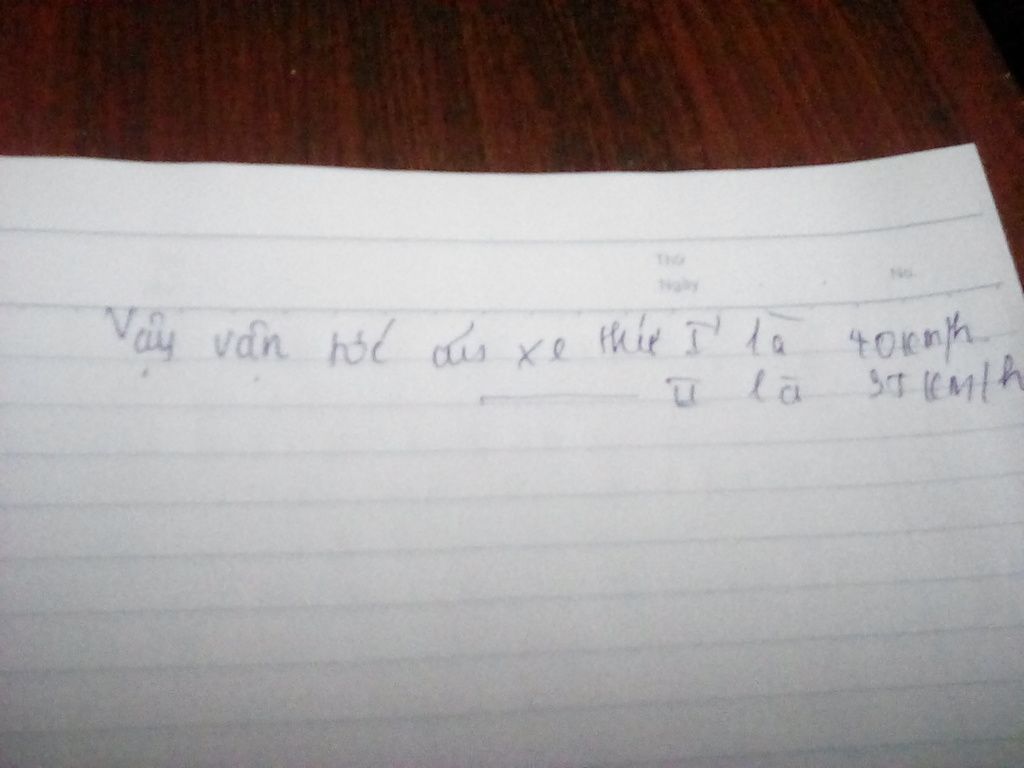 Thứ
Ngày
No.
Vậy vận tốc của xe thứ I là 40 km/h
II là 35 km/h